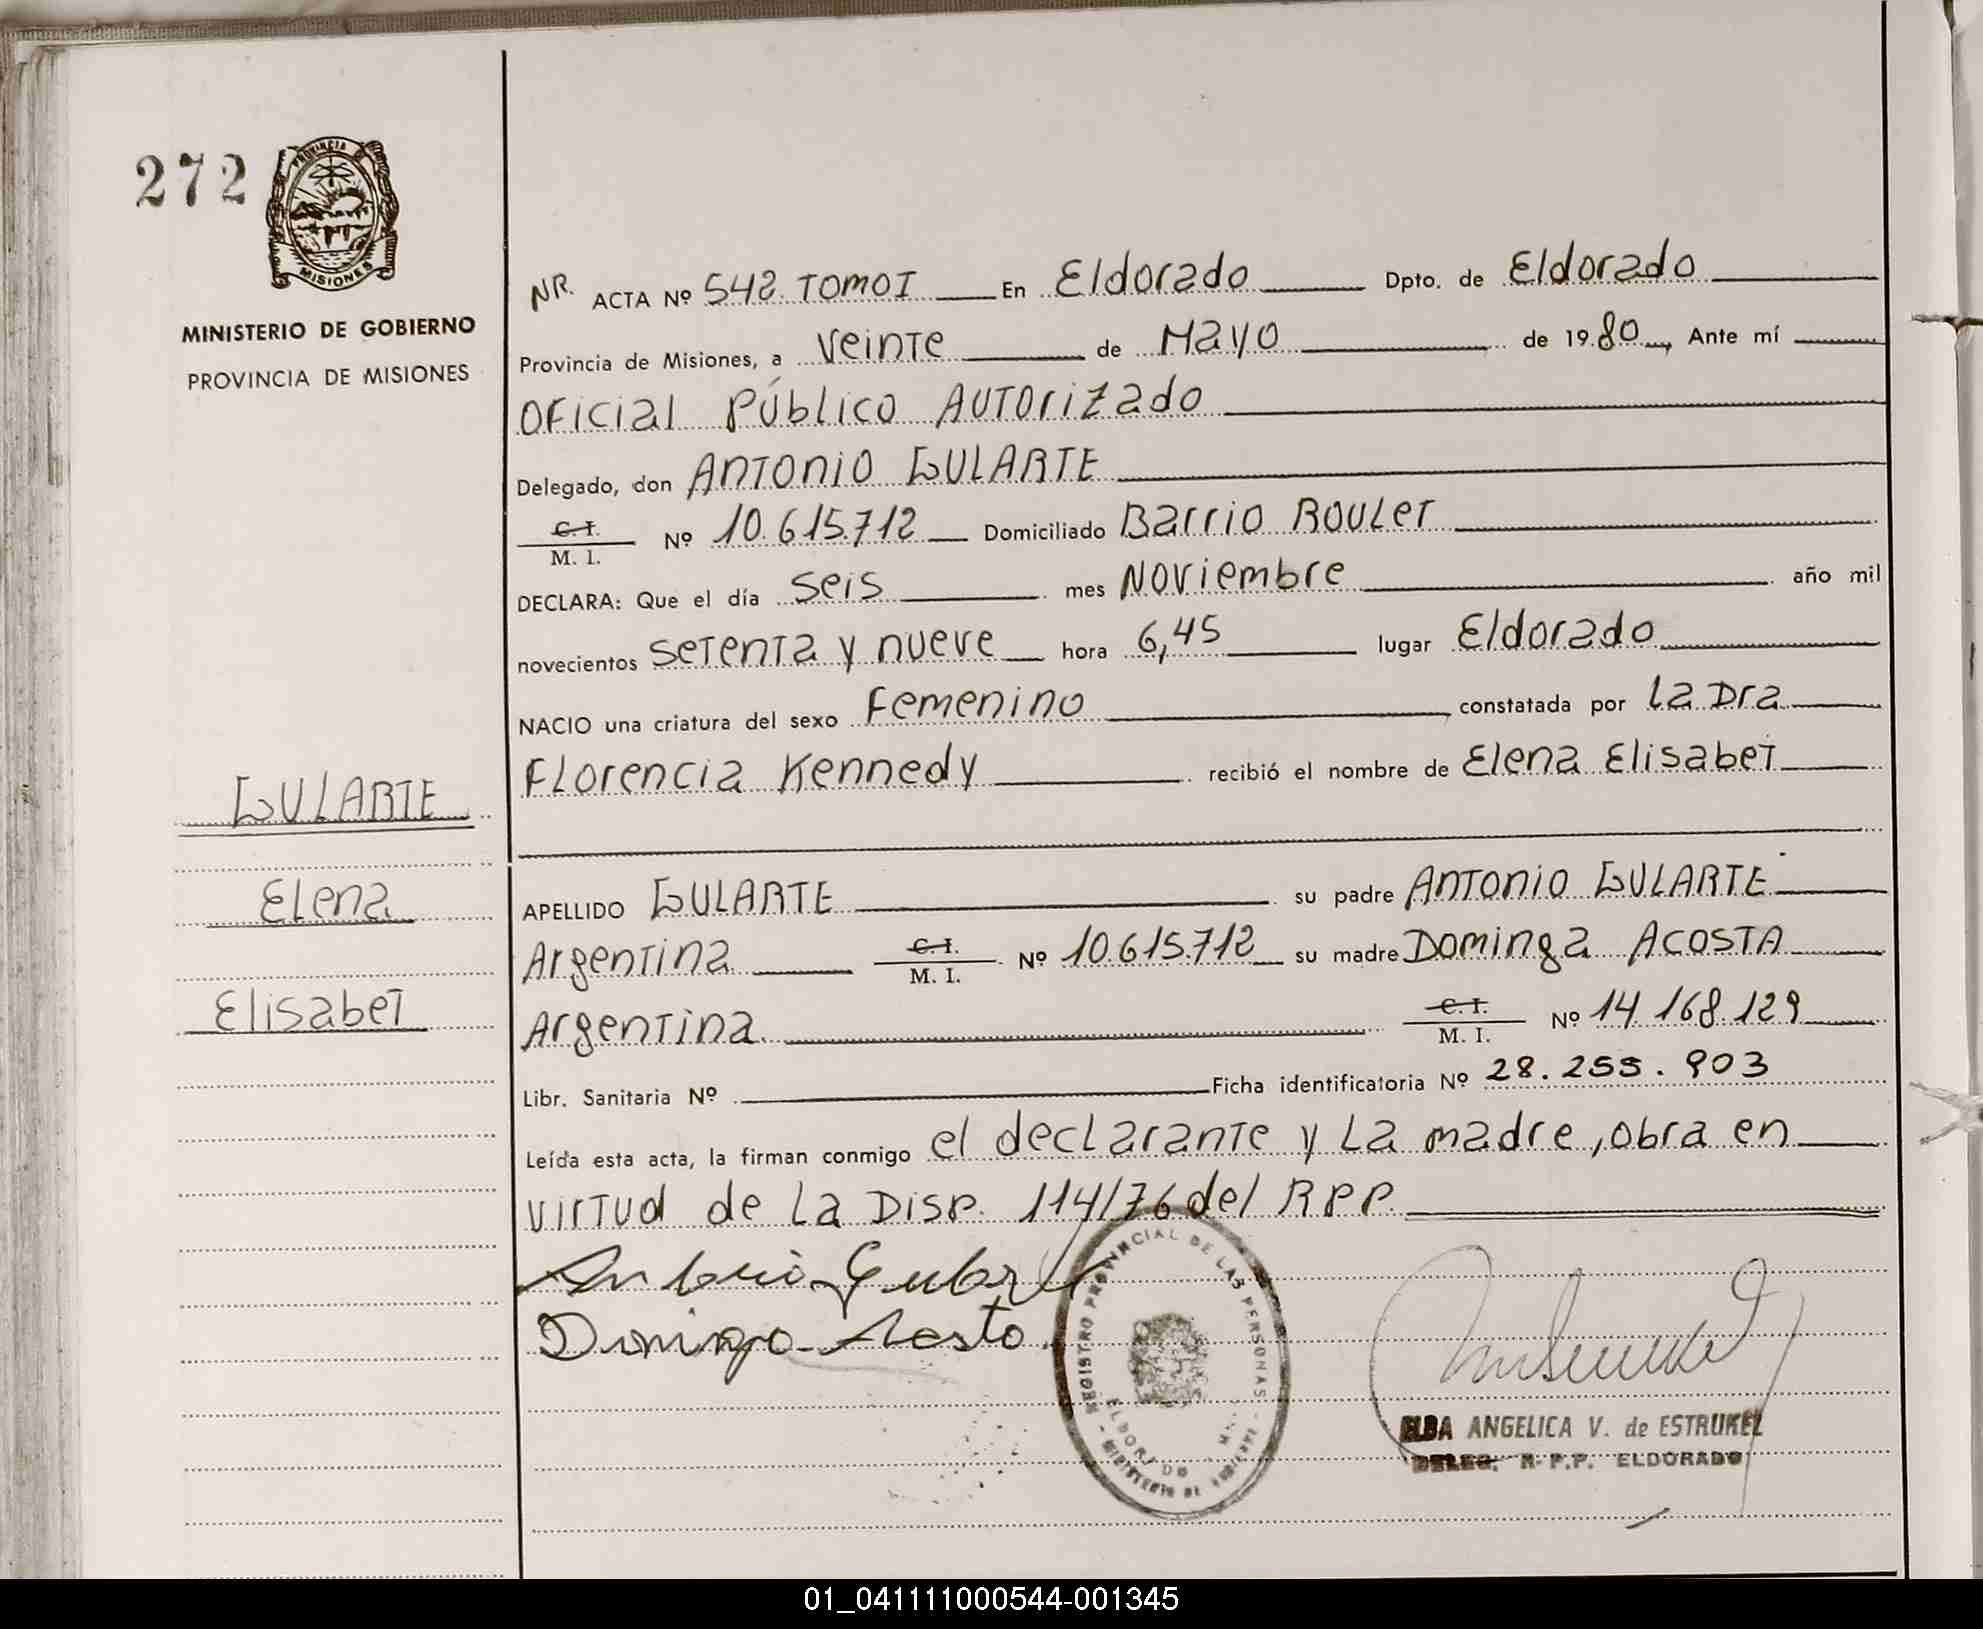 272
PROVINCIA
MISIONES
MINISTERIO DE GOBIERNO
PROVINCIA DE MISIONES
NR. ACTA Nº 542 TOMO I En Eldorado Dpto. de Eldorado
Provincia de Misiones, a Veinte de Mayo de 1980, Ante mí
Oficial Público Autorizado
Delegado, don ANTONIO GULARTE
C. I.
M. I. Nº 10.615.712 Domiciliado Barrio ROULET
DECLARA: Que el día seis mes Noviembre año mil
novecientos setenta y nueve hora 6,45 lugar Eldorado
NACIO una criatura del sexo Femenino constatada por La Dra
Florencia Kennedy recibió el nombre de Elena Elisabet
GULARTE
Elena
Elisabet
APELLIDO GULARTE su padre ANTONIO GULARTE
Argentina C. I. M. I. Nº 10.615.712 su madre Dominga ACOSTA
Argentina C. I. M. I. Nº 14.168.129
Libr. Sanitaria Nº Ficha identificatoria Nº 28.255.903
Leída esta acta, la firman conmigo el declarante y La madre, obra en
virtud de La Disp. 114/76 del R P P.
Antonio Gularte
Dominga Acosta
REGISTRO PROVINCIAL DE LAS PERSONAS
ELDORADO
MINISTERIO DE
ELBA ANGELICA V. de ESTRUKEL
DELEG. R.P.P. ELDORADO
01_041111000544-001345